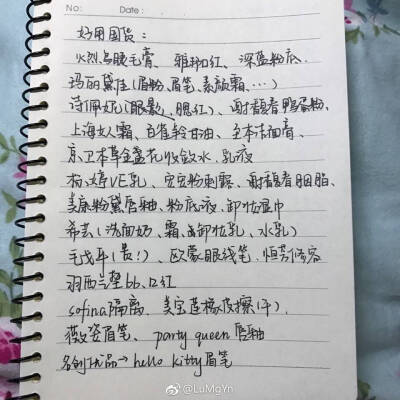 No:
Date:
好用国货：
火烈鸟睫毛膏、雅邦口红、深蓝粉底、
玛丽黛佳(眉粉、眉笔、素颜霜、…)
诗佩妮(眼影、腮红)、谢馥春鸭蛋粉、
上海女人霜、百雀羚甘油、至本洁面膏、
京卫本草金盏花收敛水、乳液
杨婷VE乳、宝宝粉刺露、谢馥春胭脂、
美康粉黛唇釉、粉底液、卸妆湿巾
希芸(洁面奶、霜、卸妆乳、水乳)
毛戈平(贵！)、欧蒙眼线笔、恒芳修容
羽西气垫bb、口红
sofina隔离、美宝莲橡皮擦(干)、
薇登眉笔、party queen唇釉
名创优品→hello kitty眉笔
@LuMgYn